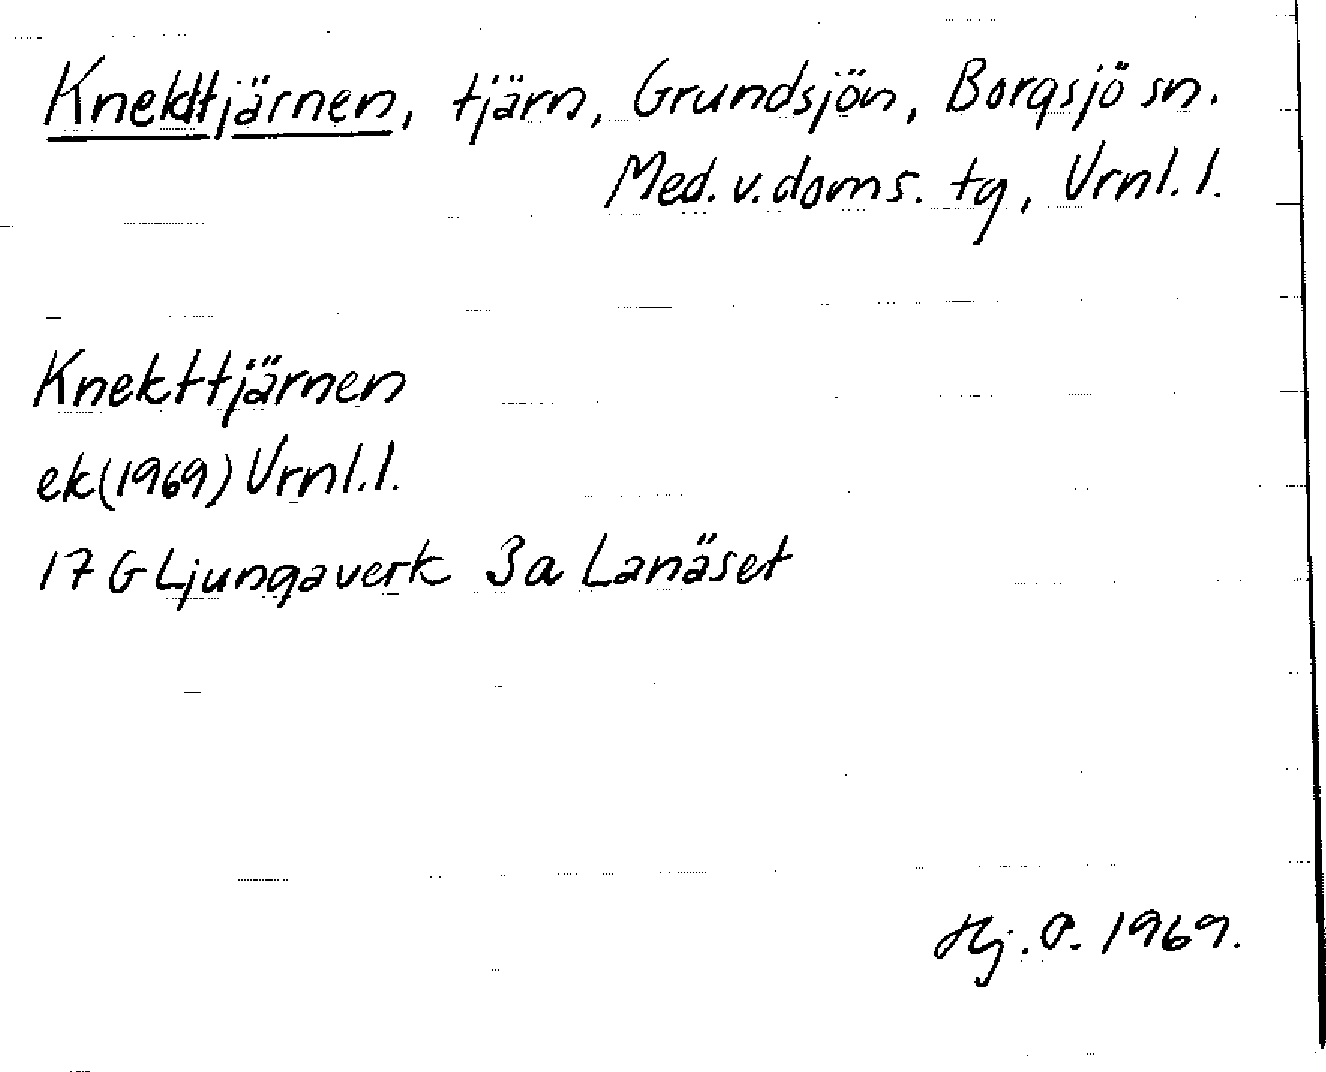 Knekttjärnen, tjärn, Grundsjön, Borgsjö sn.
Med. v. doms. tg, Vrnl. l.
Knekttjärnen
ek (1969) Vrnl. l.
17 G Ljungaverk 3a Lanäset
Hj. P. 1969.